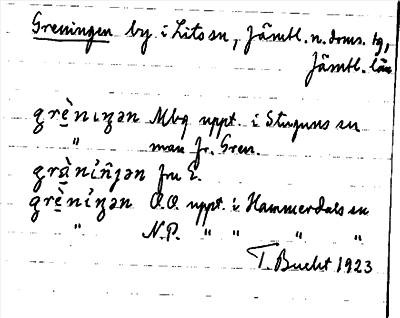 Greningen by i Lits sn, Jämtl. n. doms. tg,
Jämtl. län
grèniŋən Mbq uppt. i Stuguns sn
" man fr. Gren.
grä̀niñjən fru E.
grèniŋən O.O. uppt. i Hammerdals sn
" N.P. " " " "
T. Bucht 1923